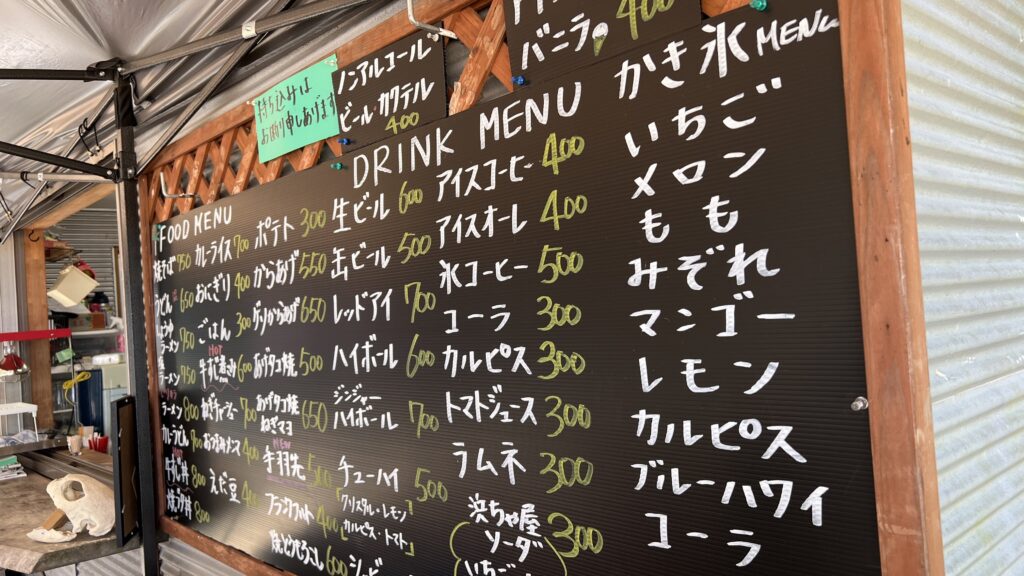 持ち込みは
お断り申しあげます
ノンアルコール
ビール・カクテル
400
バニラ 400
FOOD MENU
750
650
750
ラーメン
ラーメン 950
ラーメン 800
カレーうどん 700
800
800
カレーライス 700
おにぎり 400
ごはん 300
牛すじ煮込み 600
ねぎチャーシュー 700
えだ豆 400
ポテト 300
からあげ 550
ゲソからあげ 650
あげタコ焼 500
あげタコ焼
ねぎマヨ 650
NEW
手羽先 500
フランクフルト 400
焼とうもろこし 600
DRINK MENU
生ビール 600
缶ビール 500
レッドアイ 700
ハイボール 600
ジンジャー
ハイボール 700
チューハイ 500
「クリスタル・レモン」
「カルピス・トマト」
アイスコーヒー 400
アイスオーレ 400
氷コーヒー 500
コーラ 300
カルピス 300
トマトジュース 300
ラムネ 300
浜ちゃ屋
ソーダ 300
いちご
かき氷 MENU
いちご
メロン
もも
みぞれ
マンゴー
レモン
カルピス
ブルーハワイ
コーラ